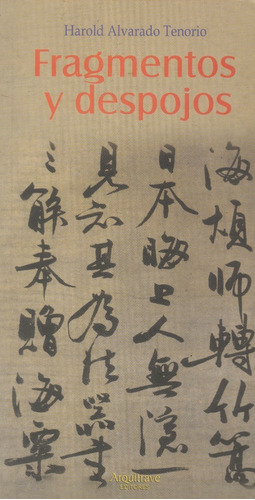 Harold Alvarado Tenorio
Fragmentos
y despojos
海煩師轉竹
日本晦上人無隱一
見其為法器書
奉贈海粟
Arquitrave
EDITORES